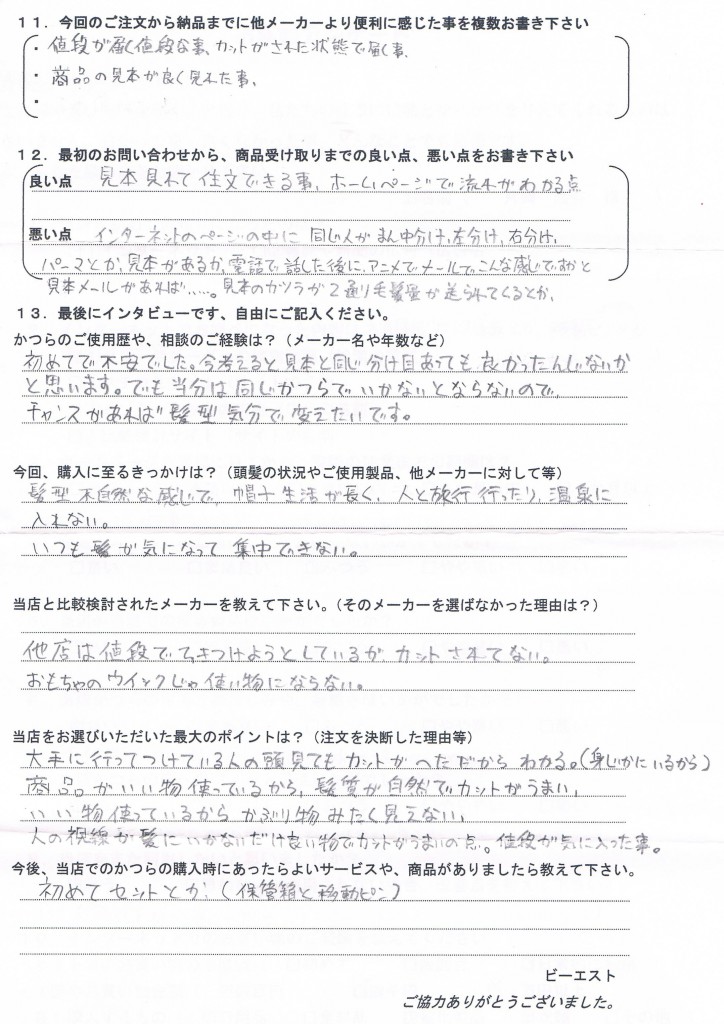 11．今回のご注文から納品までに他メーカーより便利に感じた事を複数お書き下さい
・ 値段が届く値段な事、カットがされた状態で届く事、
・ 商品の見本が良く見れた事、
・
12．最初のお問い合わせから、商品受け取りまでの良い点、悪い点をお書き下さい
良い点 見本見れて注文できる事、ホームページで流れがわかる点
悪い点 インターネットのページの中に 同じ人がまん中分け、左分け、右分け、
パーマとか、見本があるか、電話で話した後に、アニメでメールで、こんな感じですかと
見本メールがあれば……。見本のカツラが2通り毛髪量が送られてくるとか、
13．最後にインタビューです、自由にご記入ください。
かつらのご使用歴や、相談のご経験は？（メーカー名や年数など）
初めてで不安でした。今考えると見本と同じ分け目あっても良かったんじないか
と思います。でも当分は同じかつらでいかないとならないので、
チャンスがあれば髪型気分で変えたいです。
今回、購入に至るきっかけは？（頭髪の状況やご使用製品、他メーカーに対して等）
髪型不自然な感じで、帽子生活が長く、人と旅行行ったり、温泉に
入れない。
いつも髪が気になって集中できない。
当店と比較検討されたメーカーを教えて下さい。（そのメーカーを選ばなかった理由は？）
他店は値段でひきつけようとしているが、カットされてない。
おもちゃのウイックじゃ使い物にならない。
当店をお選びいただいた最大のポイントは？（注文を決断した理由等）
大手に行ってつけている人の頭見てもカットがへただからわかる。（身じかにいるから）
商品がいい物使っているから、髪質が自然でカットがうまい、
いい物使っているからかぶり物みたく見えない、
人の視線が髪にいかないだけ良い物でカットがうまいの点。値段が気に入った事。
今後、当店でのかつらの購入時にあったらよいサービスや、商品がありましたら教えて下さい。
初めてセットとか、（保管箱と移動ピン）
ビーエスト
ご協力ありがとうございました。